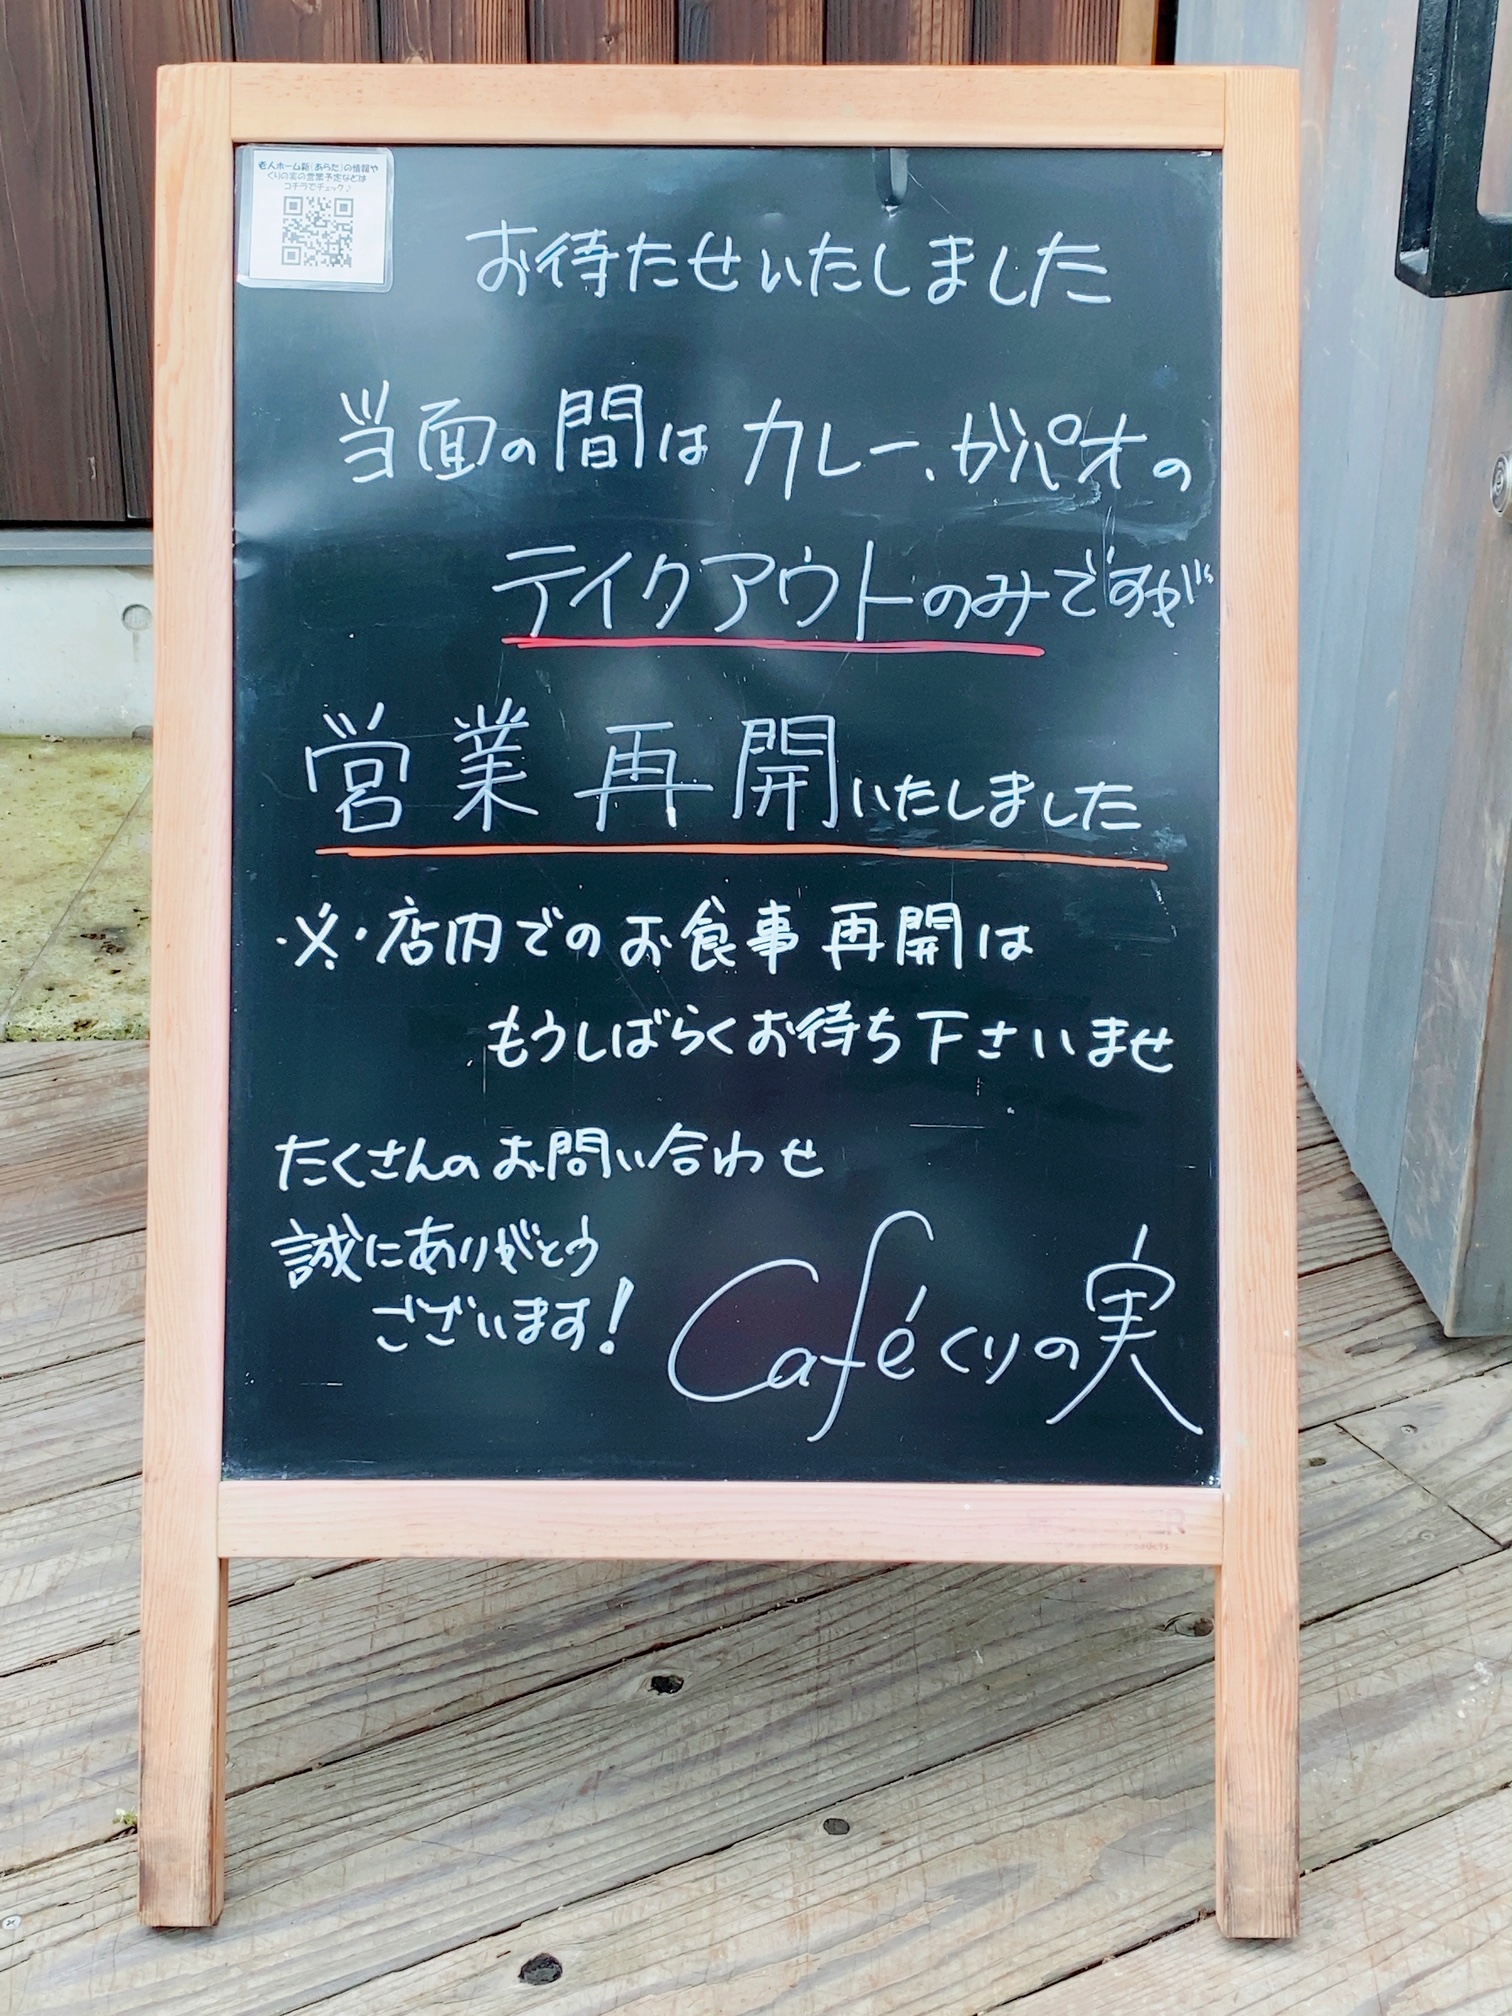 老人ホーム新(あらた)の情報や
くりの実の営業予定などは
コチラでチェック♪
お待たせいたしました
当面の間は カレー、ガパオの
テイクアウトのみですが
営業再開いたしました
※・店内でのお食事再開は
もうしばらくお待ち下さいませ
たくさんのお問い合わせ
誠にありがとう
ございます!
Café くりの実